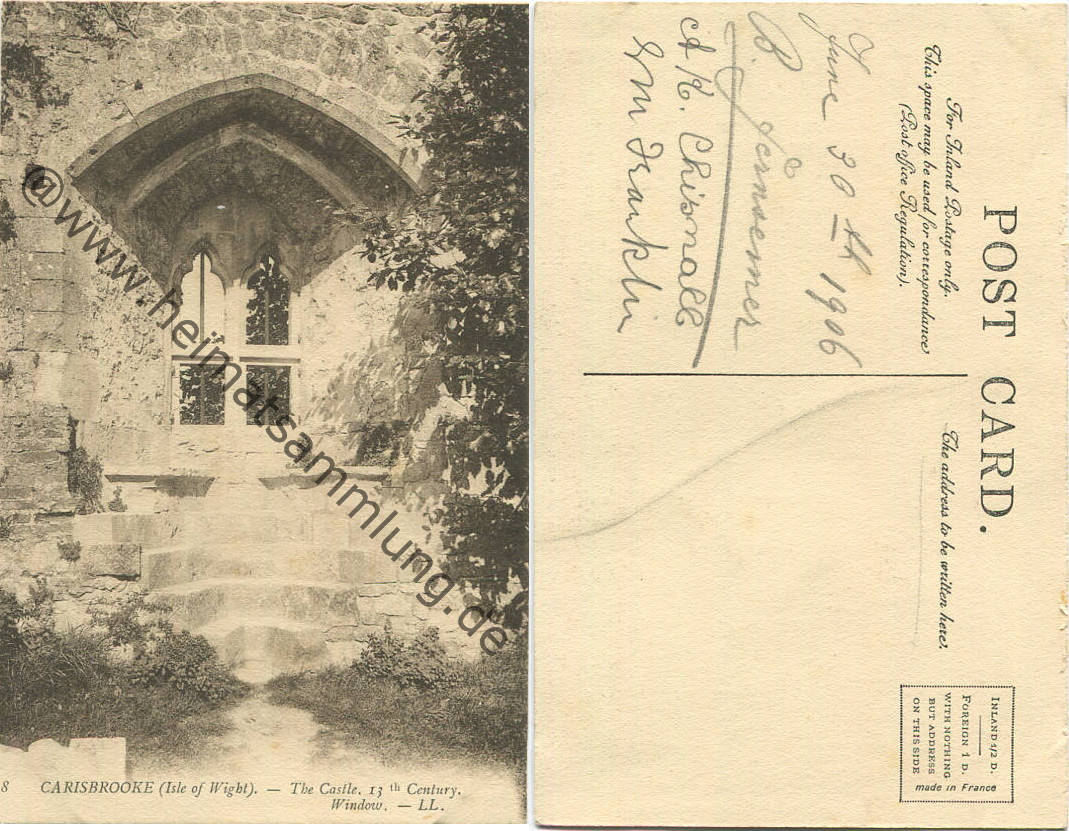 @www.heimatsammlung.de
8 CARISBROOKE (Isle of Wight). — The Castle. 13th Century.
Window. — LL.
POST CARD.
For Inland Postage only.
This space may be used for correspondance
(Post office Regulation).
The address to be written here.
INLAND 1/2 D.
FOREIGN 1 D.
WITH NOTHING
BUT ADDRESS
ON THIS SIDE
made in France
June 30th 1906
B.
A K. Chisnall